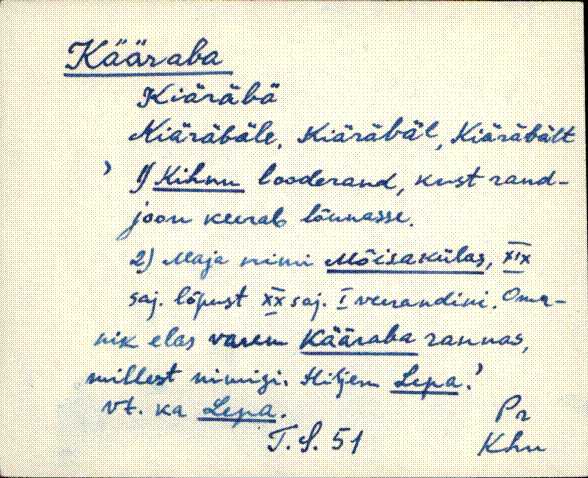 Kääraba
Kiäräbä
Kiäräbäle, Kiäräbäl, Kiäräbält
' 1) Kihnu looderand, kust rand-
joon keerab lõunasse.
2) Maja nimi Mõisakülas, XIX
saj. lõpust XX saj. I veerandini. Oma-
nik elas varem Kääraba rannas,
millest nimigi. Hiljem Lepa.'
vt. ka Lepa.
Pr
T.S. 51
Khn